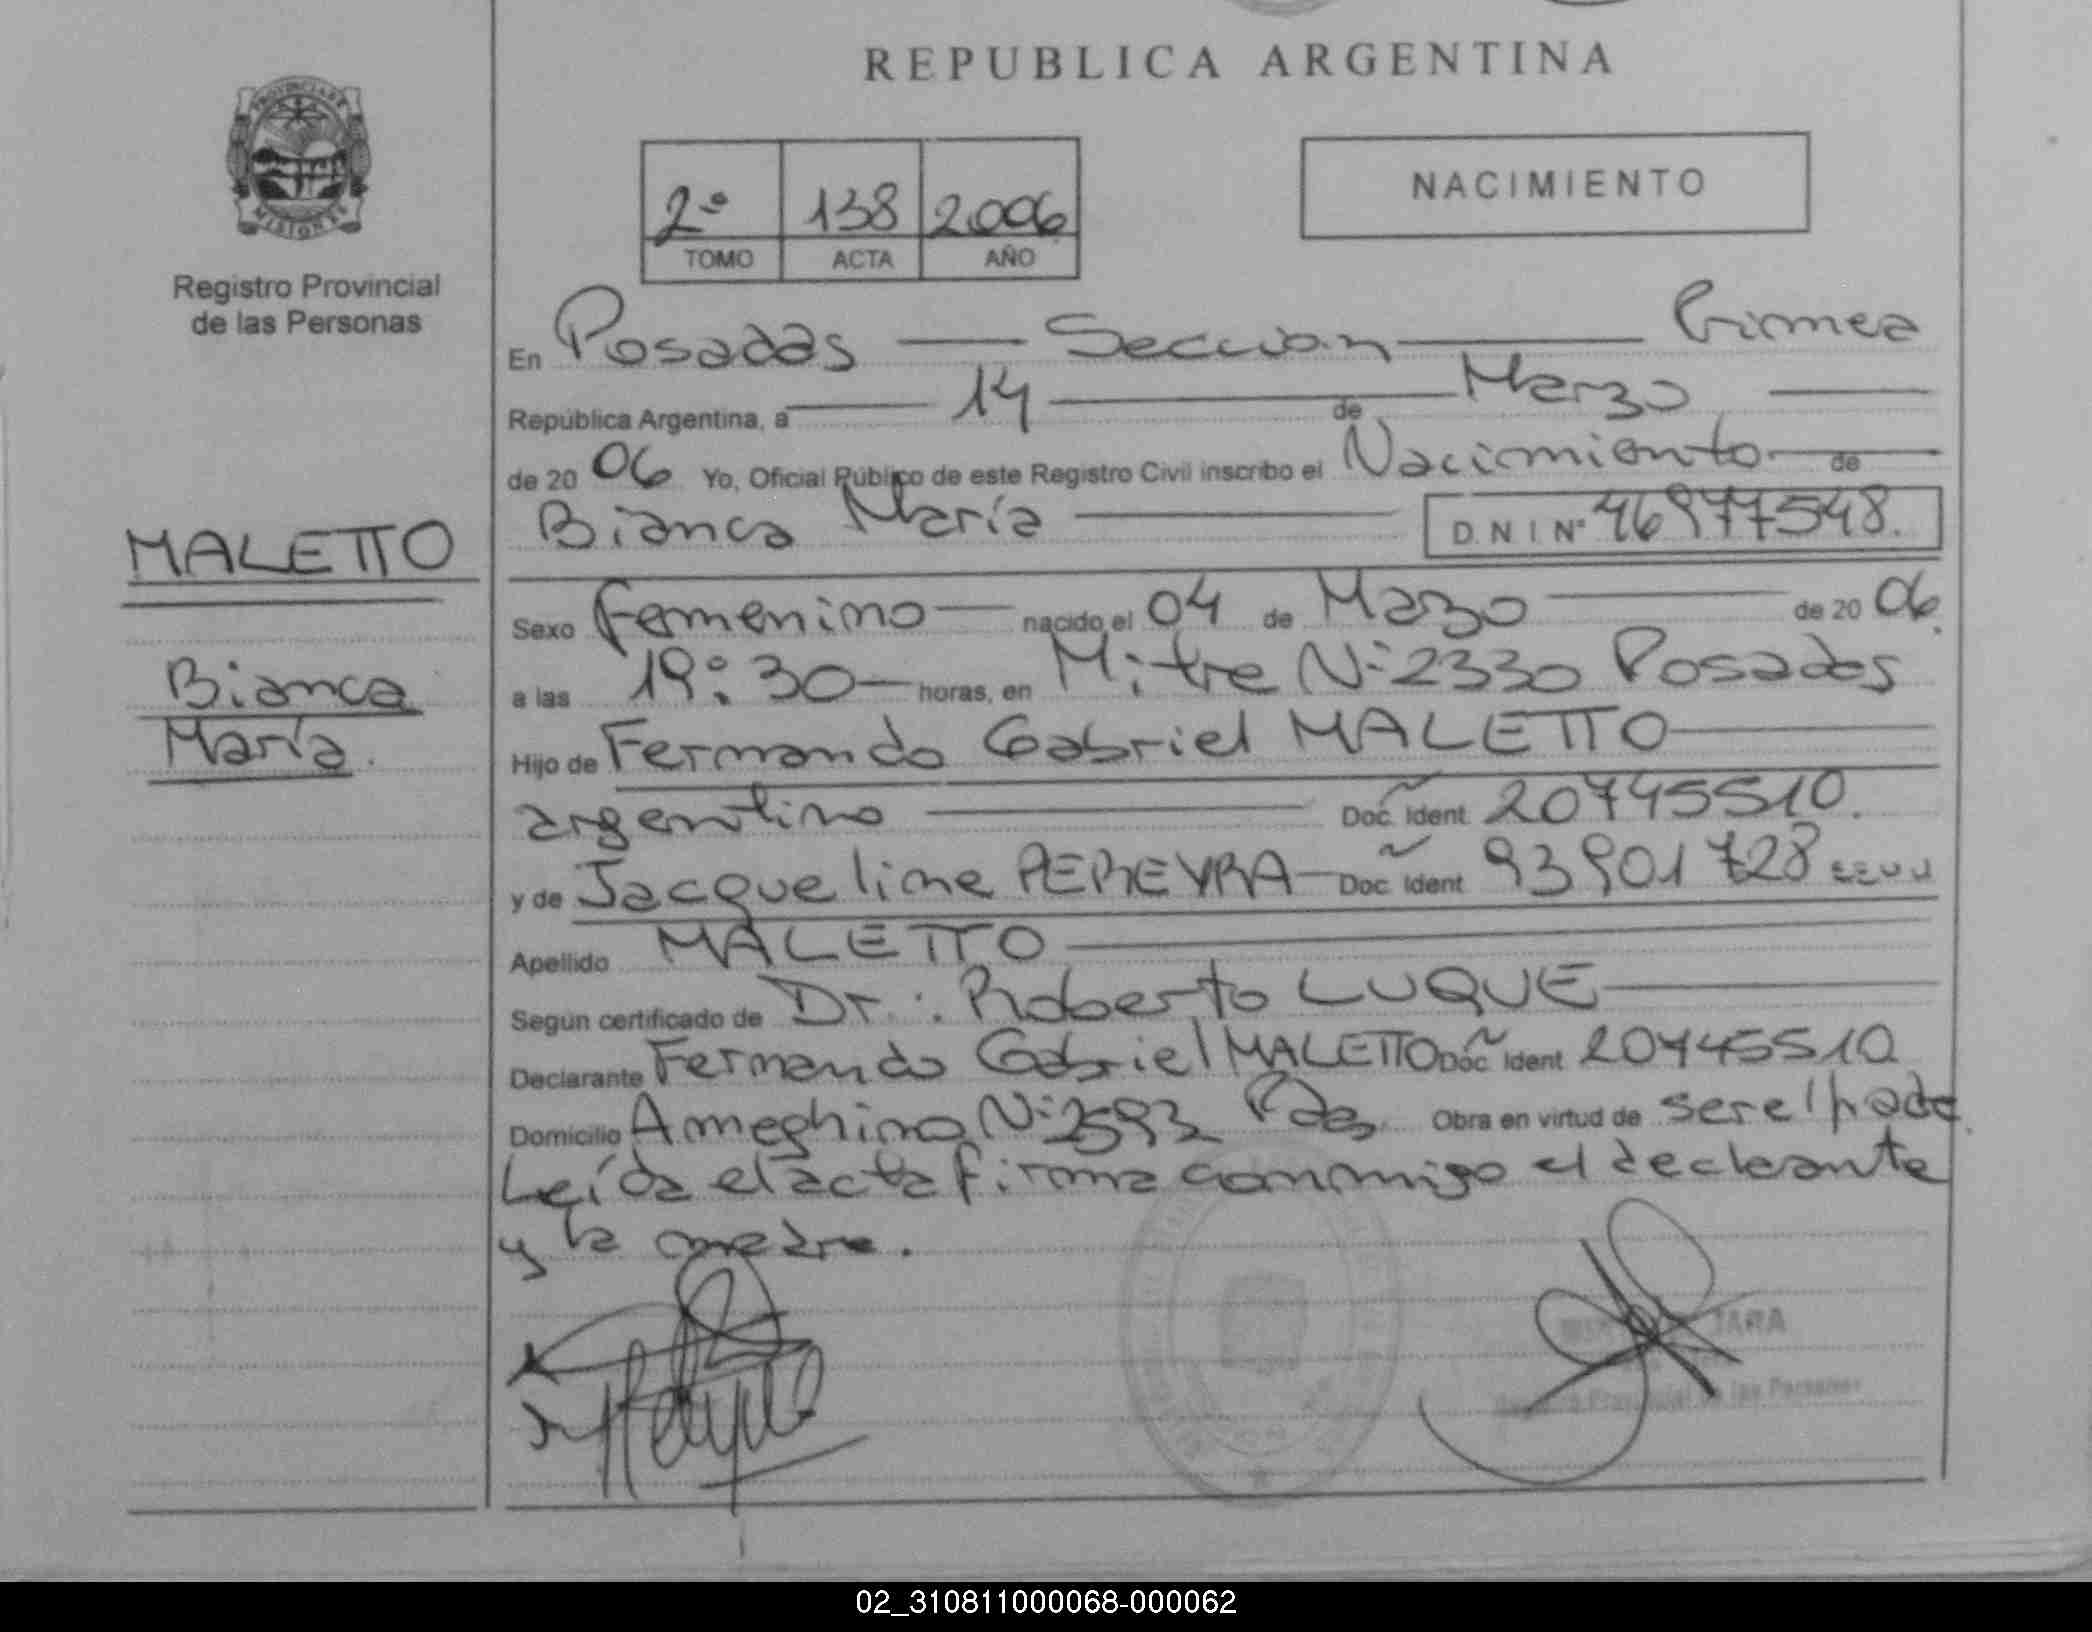 REPUBLICA ARGENTINA
PROVINCIA DE
MISIONES
Registro Provincial
de las Personas
2º 138 2006
TOMO ACTA AÑO
NACIMIENTO
En Posadas — Sección — Primera
República Argentina, a — 14 — de Marzo —
de 20 06 Yo, Oficial Público de este Registro Civil inscribo el Nacimiento — de
Bianca María — D.N.I. Nº 46977548.
MALETTO
Bianca
María.
Sexo Femenino — nacido el 04 de Marzo — de 20 06.
a las 19:30 — horas, en Mitre Nº 2330 Posadas
Hijo de Fernando Gabriel MALETTO —
argentino — Doc. Ident. 20745510.
y de Jacqueline PEREYRA — Doc. Ident. 93901728 EEUU
Apellido MALETTO —
Según certificado de Dr.: Roberto LUQUE —
Declarante Fernando Gabriel MALETTO Doc. Ident 20745510
Domicilio Ameghino Nº 2593 Pdas. Obra en virtud de ser el padre.
Leída el acta firma conmigo el declarante
y la madre.
Registro Provincial de las Personas
02_310811000068-000062